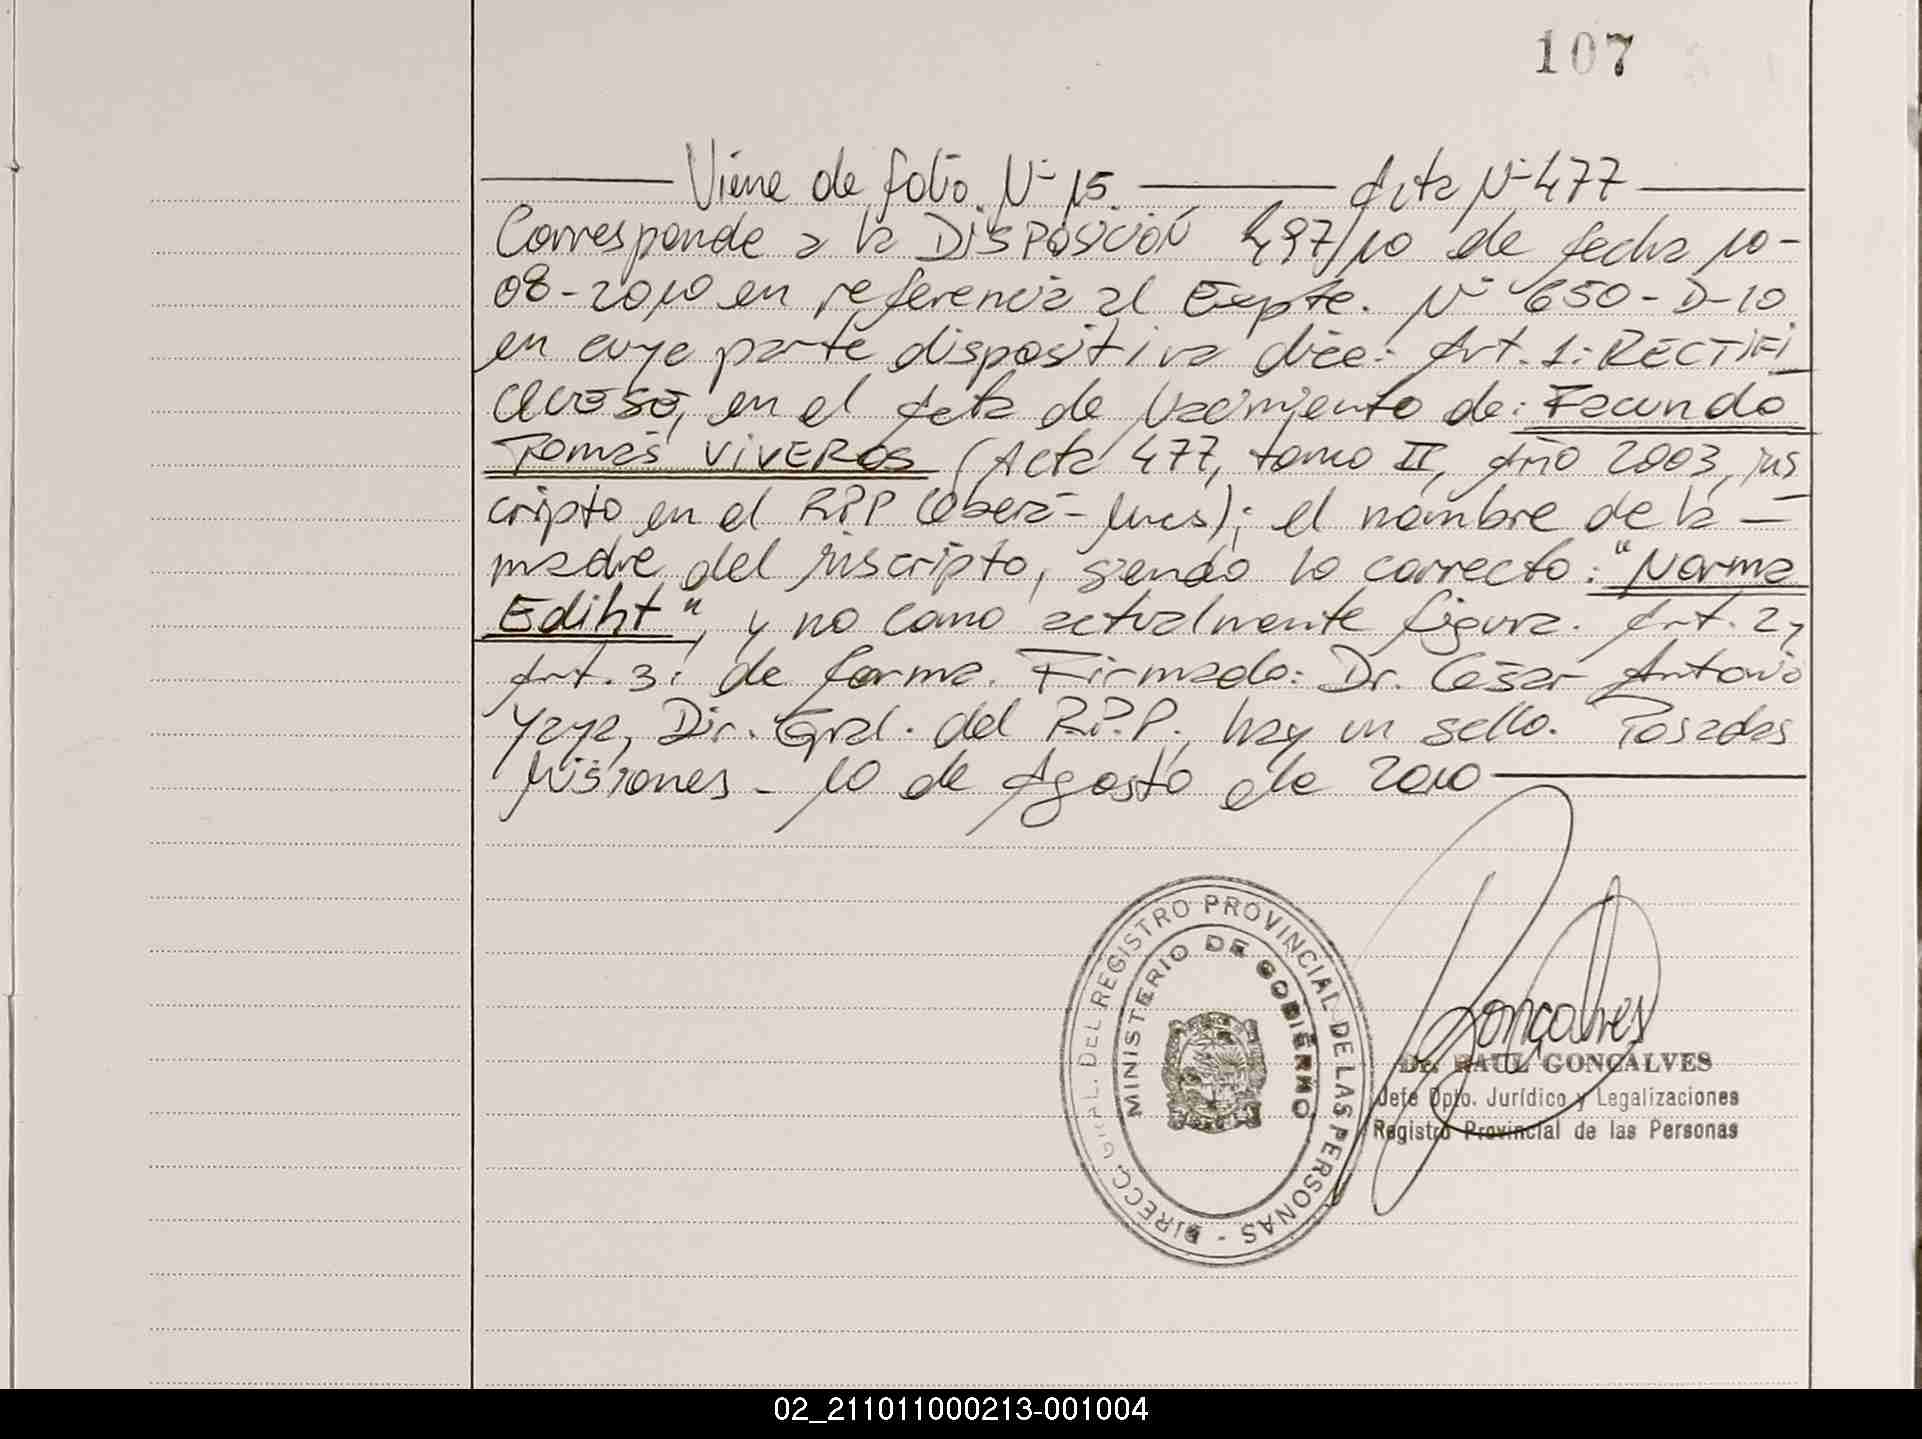 107
Viene de folio Nº 15. Acta Nº 477
Corresponde a la DISPOSICIÓN 497/10 de fecha 10-
08-2010 en referencia al Expte. Nº 650-D-10
en cuya parte dispositiva dice: Art. 1: RECTIFI
CUESE, en el Acta de Nacimiento de: Facundo
Tomás VIVEROS (Acta 477, tomo II, Año 2003, ins
cripto en el R.P.P (Oberá - Mnes); el nombre de la —
madre del inscripto, siendo lo correcto: "Norma
Ediht", y no como actualmente figura. Art. 2,
Art. 3: de forma. Firmado: Dr. César Antonio
Yaya, Dir. Gral. del R.P.P., hay un sello. Posadas
Misiones - 10 de Agosto de 2010
DIRECC. GRAL. DEL REGISTRO PROVINCIAL DE LAS PERSONAS -
MINISTERIO DE GOBIERNO
Gonçalves
Dr. RAUL GONCALVES
Jefe Dpto. Jurídico y Legalizaciones
Registro Provincial de las Personas
02_211011000213-001004